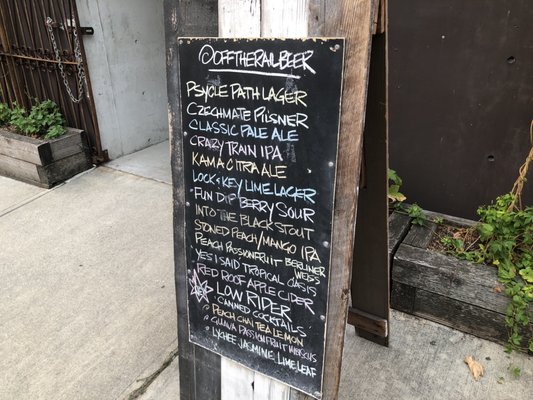 @OFFTHERAILBEER
PSYCLE PATH LAGER
CZECHMATE PILSNER
CLASSIC PALE ALE
CRAZY TRAIN IPA
KAMA CITRA ALE
LOCK & KEY LIME LAGER
FUN DIP BERRY SOUR
INTO THE BLACK STOUT
STONED PEACH/MANGO IPA
PEACH PASSIONFRUIT BERLINER
WEISS
YES I SAID TROPICAL OASIS
RED ROOF APPLE CIDER
LOW RIDER
CANNED COCKTAILS
PEACH CHAI TEA LEMON
GUAVA PASSIONFRUIT HIBISCUS
LYCHEE, JASMINE, LIME LEAF